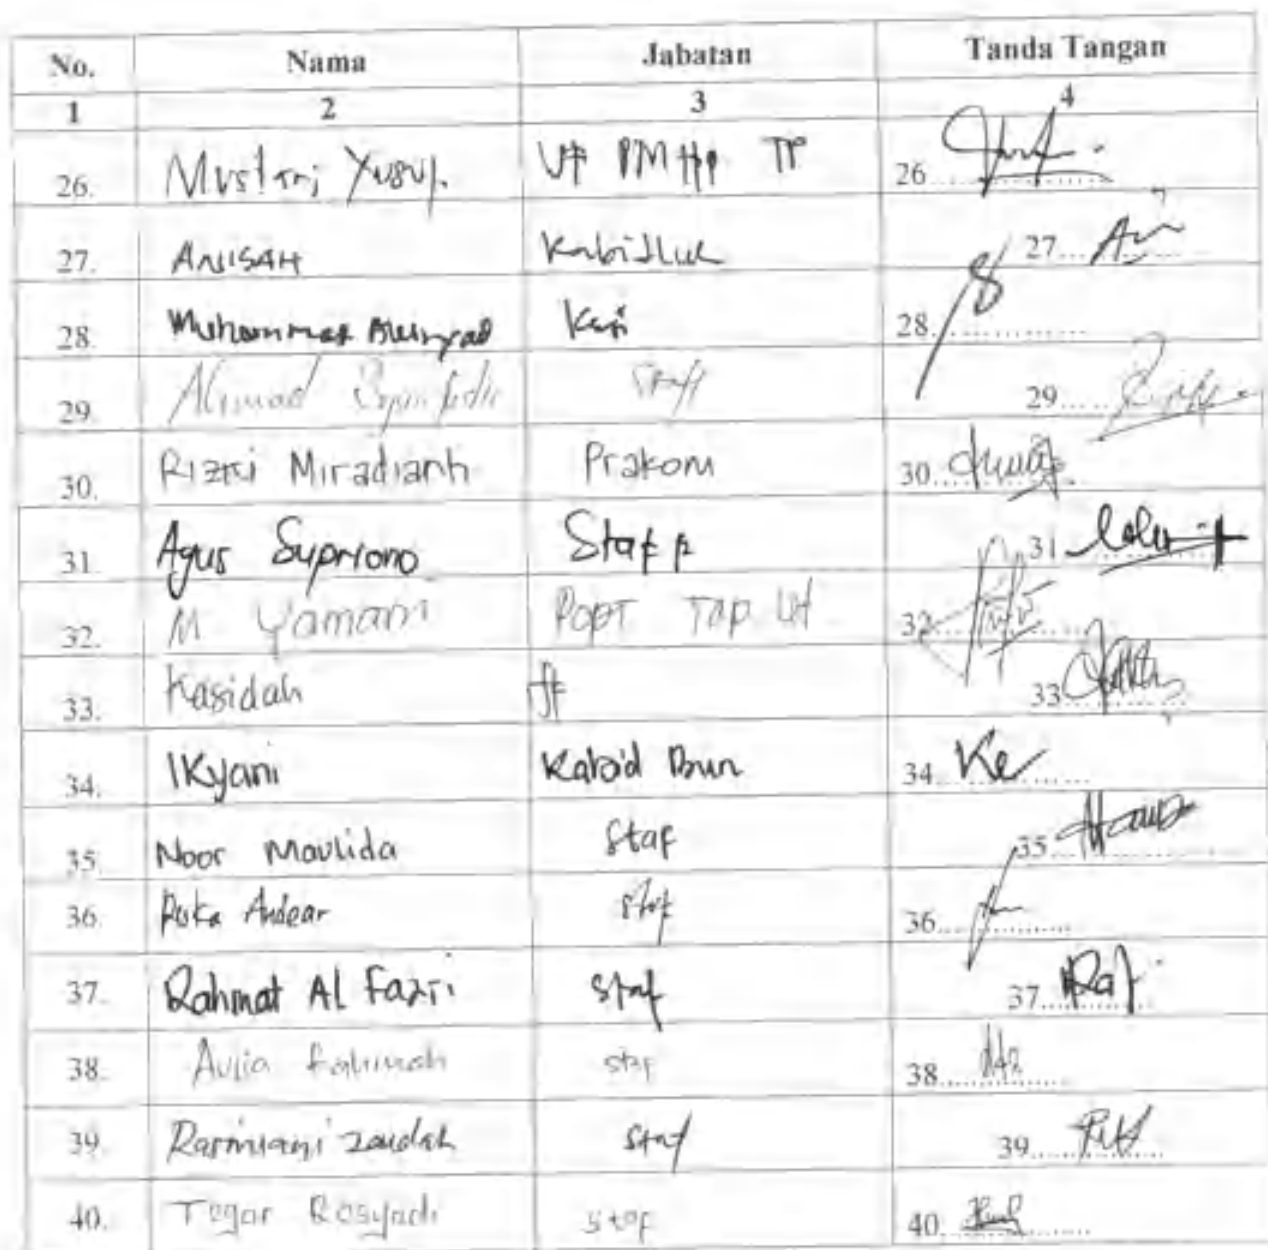 No. Nama Jabatan Tanda Tangan
1 2 3 4
26. Mustani Yusuf. PMHP TP 26
27. ANISAH Kabidluh 27
28. Muhammad Kasi 28
29. Ahmad Staff 29
30. Rizki Miradianti Prakom 30
31. Agus Supriono Staff 31
32. M Yamani POPT TAP. 32
33. Kasidah 33
34. IKyani Kabid Bun 34. Ke
35. Noor Maulida Staf 35
36. Andear Staf 36
37. Rahmat Al Fazri Staf 37
38. Aulia Fatimah staf 38
39. Rasmiani Zaudah Staf 39
40. Tegar Rosyadi staf 40